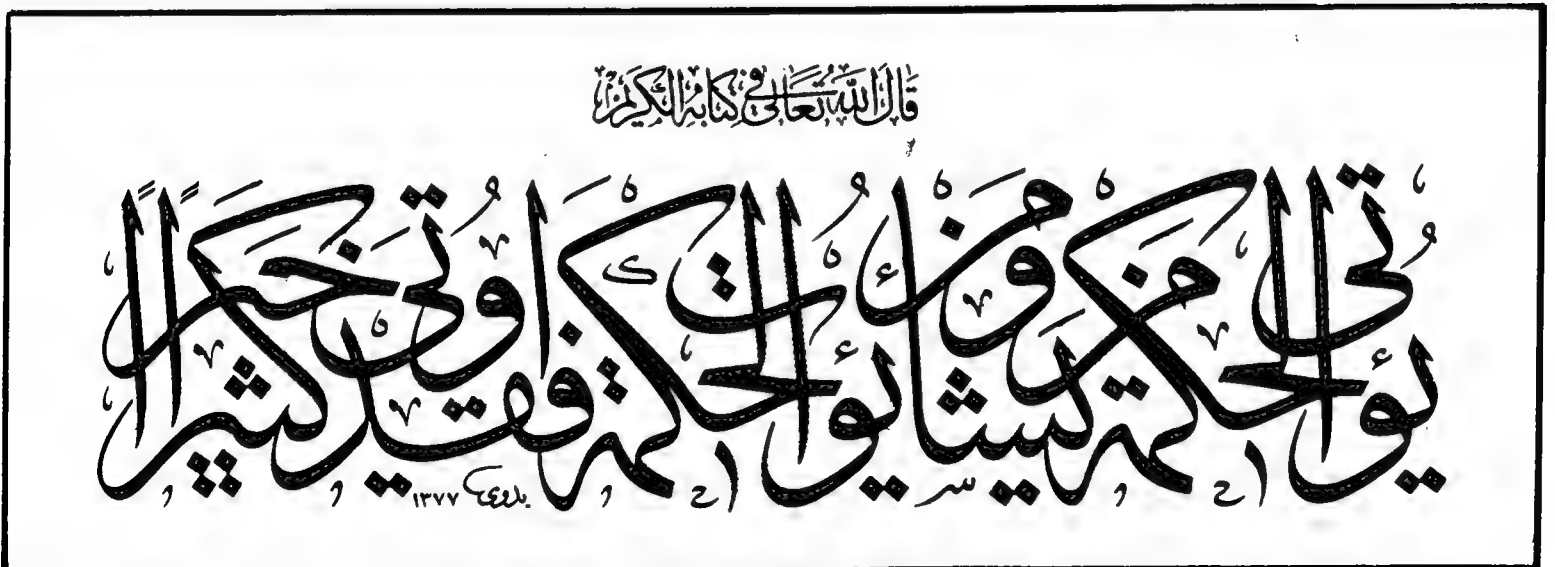 قَالَ اللهُ تَعَالَى فِي كِتَابِهِ الْكَرِيمِ
يُؤْتِى الْحِكْمَةَ مَنْ يَشَاءُ وَمَنْ يُؤْتَ الْحِكْمَةَ فَقَدْ أُوتِىَ خَيْرًا كَثِيرًا
بدوي ١٣٧٧